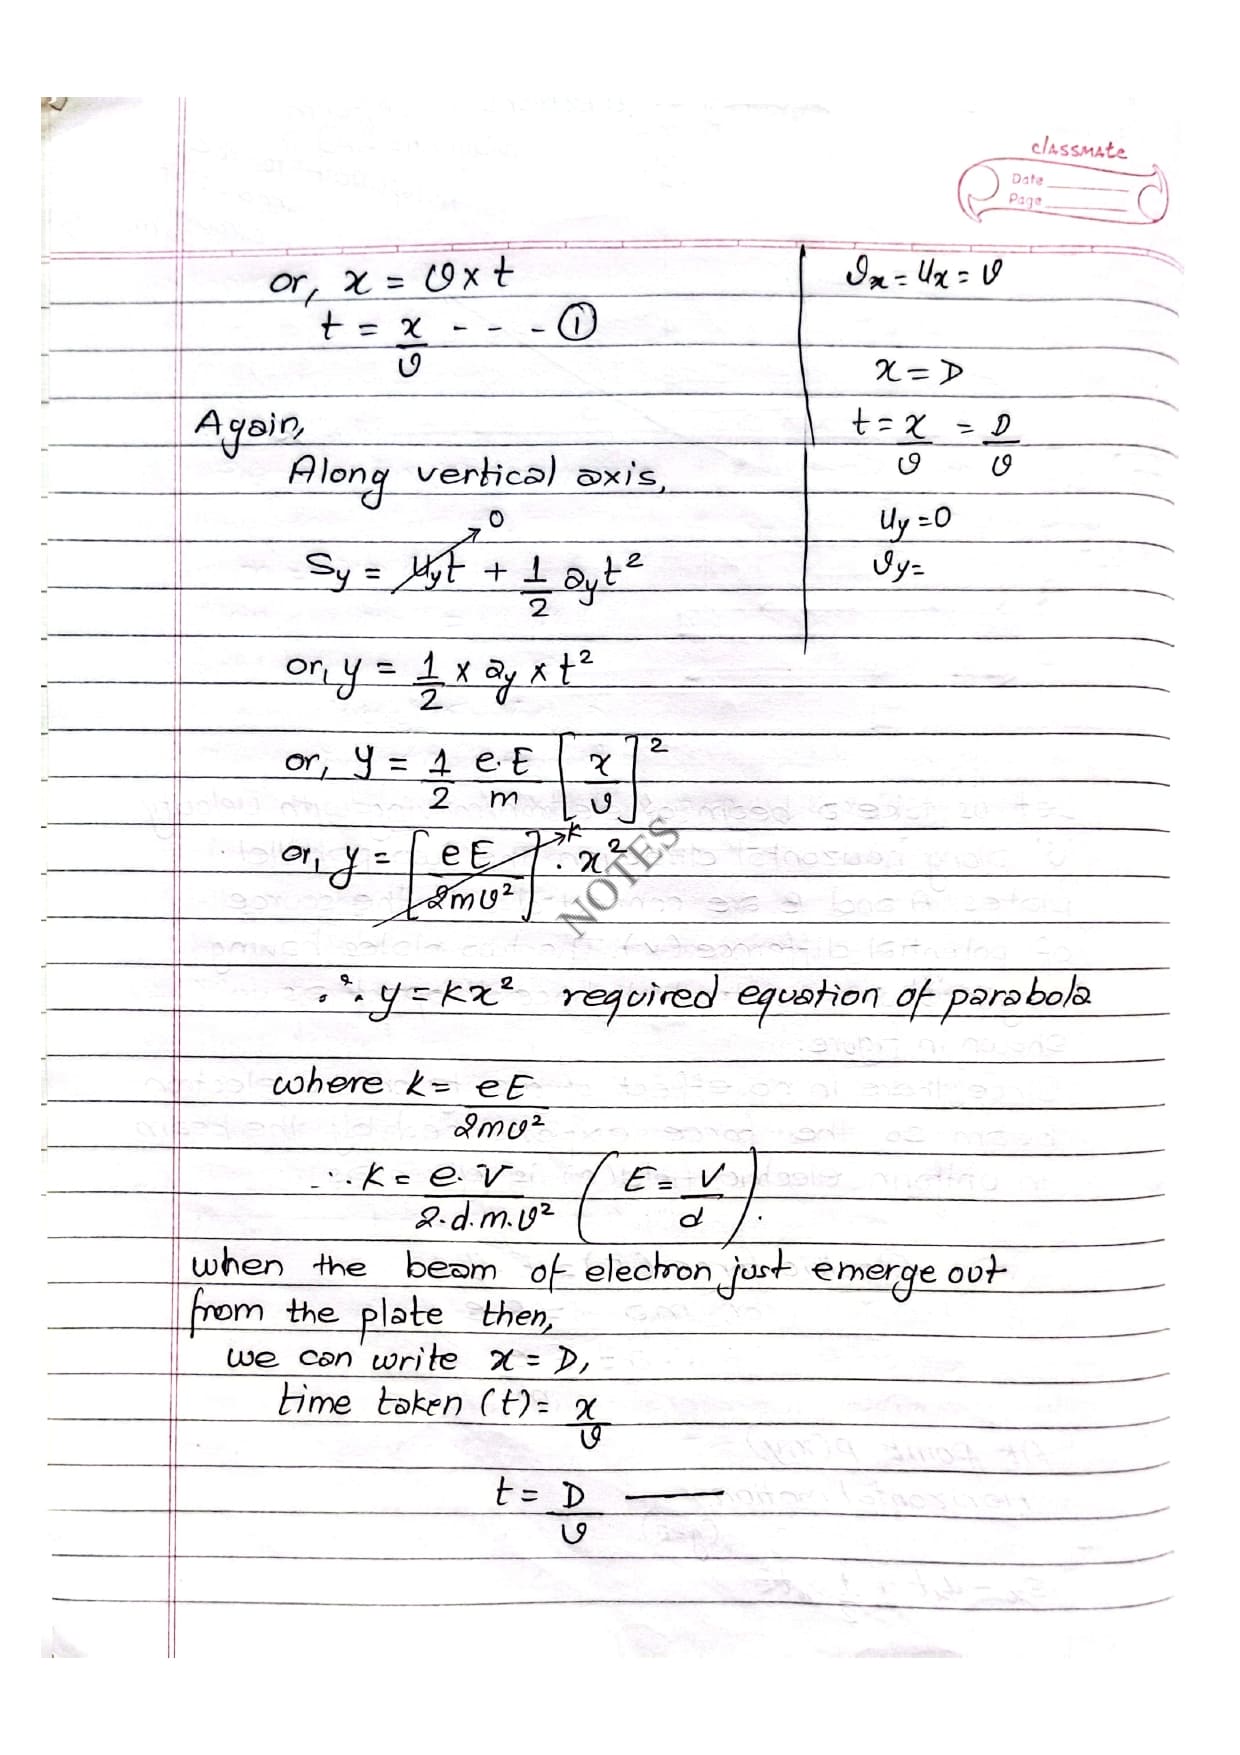 classmate
Date
Page
or, x = v × t
t = x/v - - - ①
Again,
Along vertical axis,
Sy = uyt → 0 + 1/2 ayt²
or, y = 1/2 × ay × t²
or, y = 1/2 e.E/m [x/v]²
or, y = [eE/2mv²] → k . x²
∴ y = kx² required equation of parabola
where k = eE/2mv²
∴ k = e.V/2.d.m.v² (E = V/d).
when the beam of electron just emerge out
from the plate then,
we can write x = D,
time taken (t) = x/v
t = D/v ——
vx = ux = v
x = D
t = x/v = D/v
uy = 0
vy =
NOTES